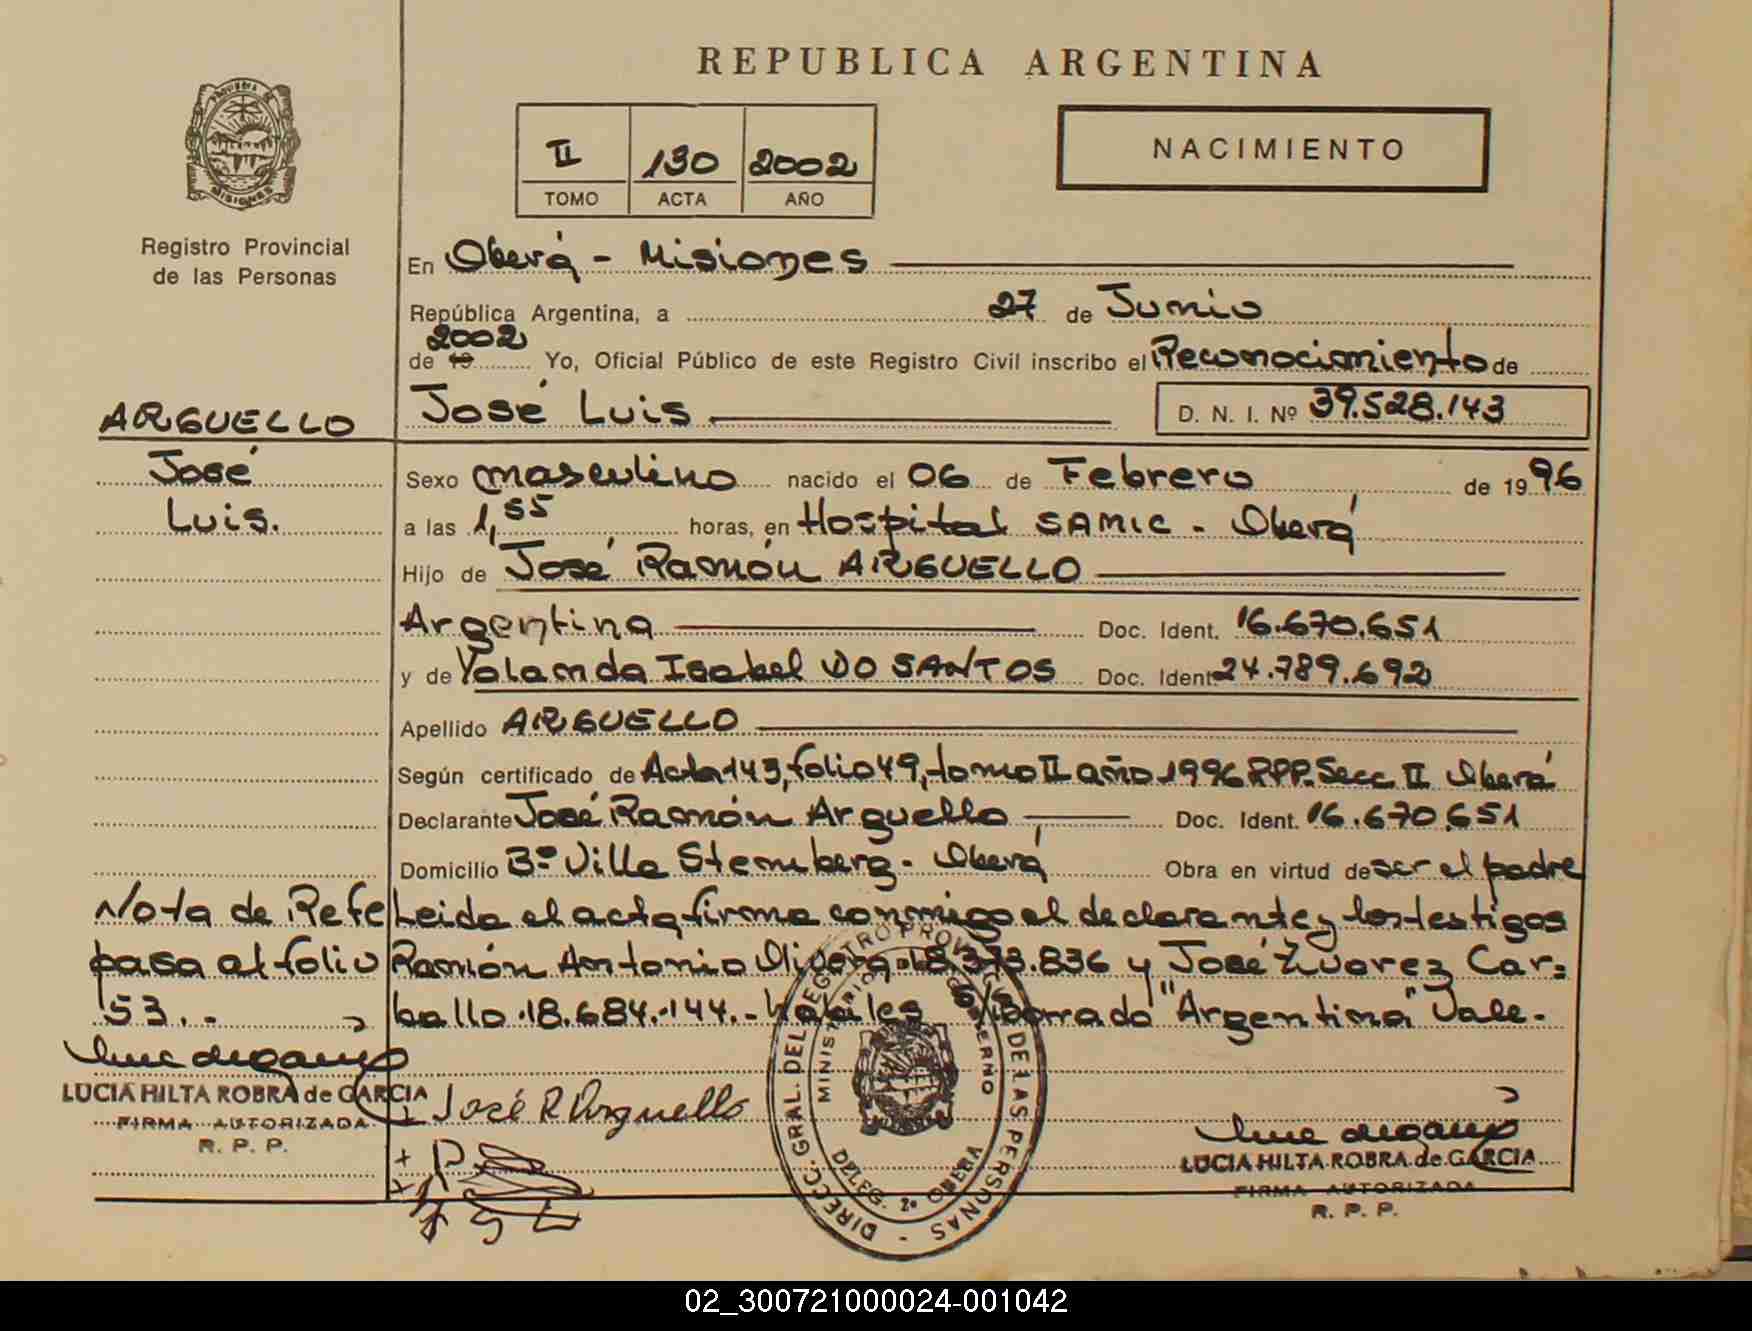 REPUBLICA ARGENTINA
PROVINCIA DE
MISIONES
Registro Provincial
de las Personas
II 130 2002
TOMO ACTA AÑO
NACIMIENTO
En Oberá - Misiones
República Argentina, a 27 de Junio
de 19 2002 Yo, Oficial Público de este Registro Civil inscribo el Reconocimiento de
José Luis D. N. I. Nº 39.528.143
ARGUELLO
José
Luis.
Sexo masculino nacido el 06 de Febrero de 1996
a las 1,55 horas, en Hospital SAMIC - Oberá
Hijo de José Ramón ARGUELLO
Argentina Doc. Ident. 16.670.651
y de Yolanda Isabel DO SANTOS Doc. Ident. 24.789.692
Apellido ARGUELLO
Según certificado de Acta 143, folio 49, tomo II año 1996 RPP. Secc II Oberá
Declarante José Ramón Arguello Doc. Ident. 16.670.651
Domicilio Bº Villa Stemberg - Oberá Obra en virtud de ser el padre
Leida el acta firma conmigo el declarante y los testigos
Ramón Antonio Olivera 18.373.836 y José Zuarez Car=
ballo 18.684.144.- habiles S/borrado "Argentina" Vale.-
Nota de Refe
pasa al folio
153.-
LUCIA HILTA ROBRA de GARCIA
FIRMA AUTORIZADA
R. P. P.
José R Arguello
DIRECC. GRAL. DEL REGISTRO PROVINCIAL DE LAS PERSONAS -
MINISTERIO DE GOBIERNO
DELEG. 2ª OBERA
LUCIA HILTA ROBRA de GARCIA
FIRMA AUTORIZADA
R. P. P.
02_300721000024-001042